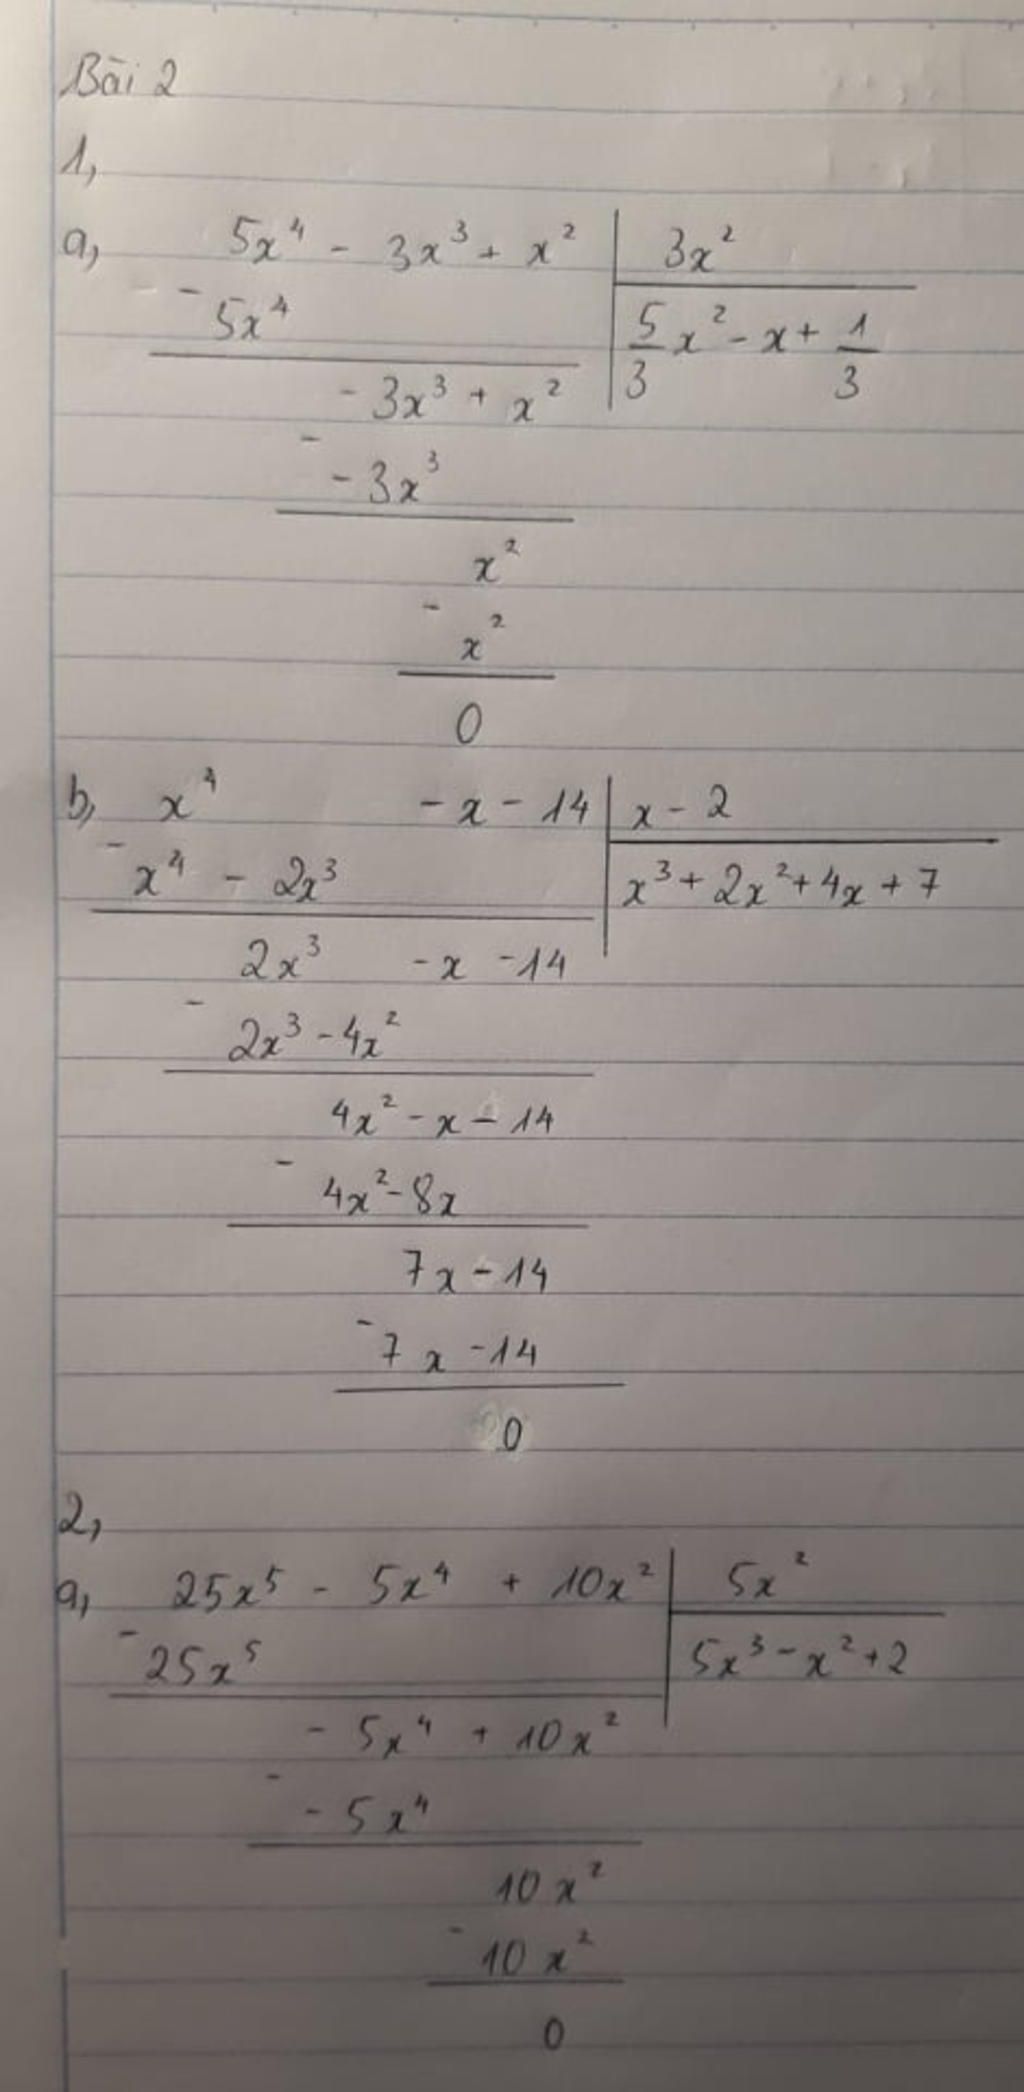 Bài 2
1,
a, 5x⁴ - 3x³ + x² | 3x²
- 5x⁴ | 5/3 x² - x + 1/3
- 3x³ + x²
- - 3x³
x²
- x²
0
b, x⁴ - x - 14 | x - 2
- x⁴ - 2x³ | x³ + 2x² + 4x + 7
2x³ - x - 14
- 2x³ - 4x²
4x² - x - 14
- 4x² - 8x
7x - 14
- 7x - 14
0
2,
a, 25x⁵ - 5x⁴ + 10x² | 5x²
- 25x⁵ | 5x³ - x² + 2
- 5x⁴ + 10x²
- - 5x⁴
10x²
- 10x²
0